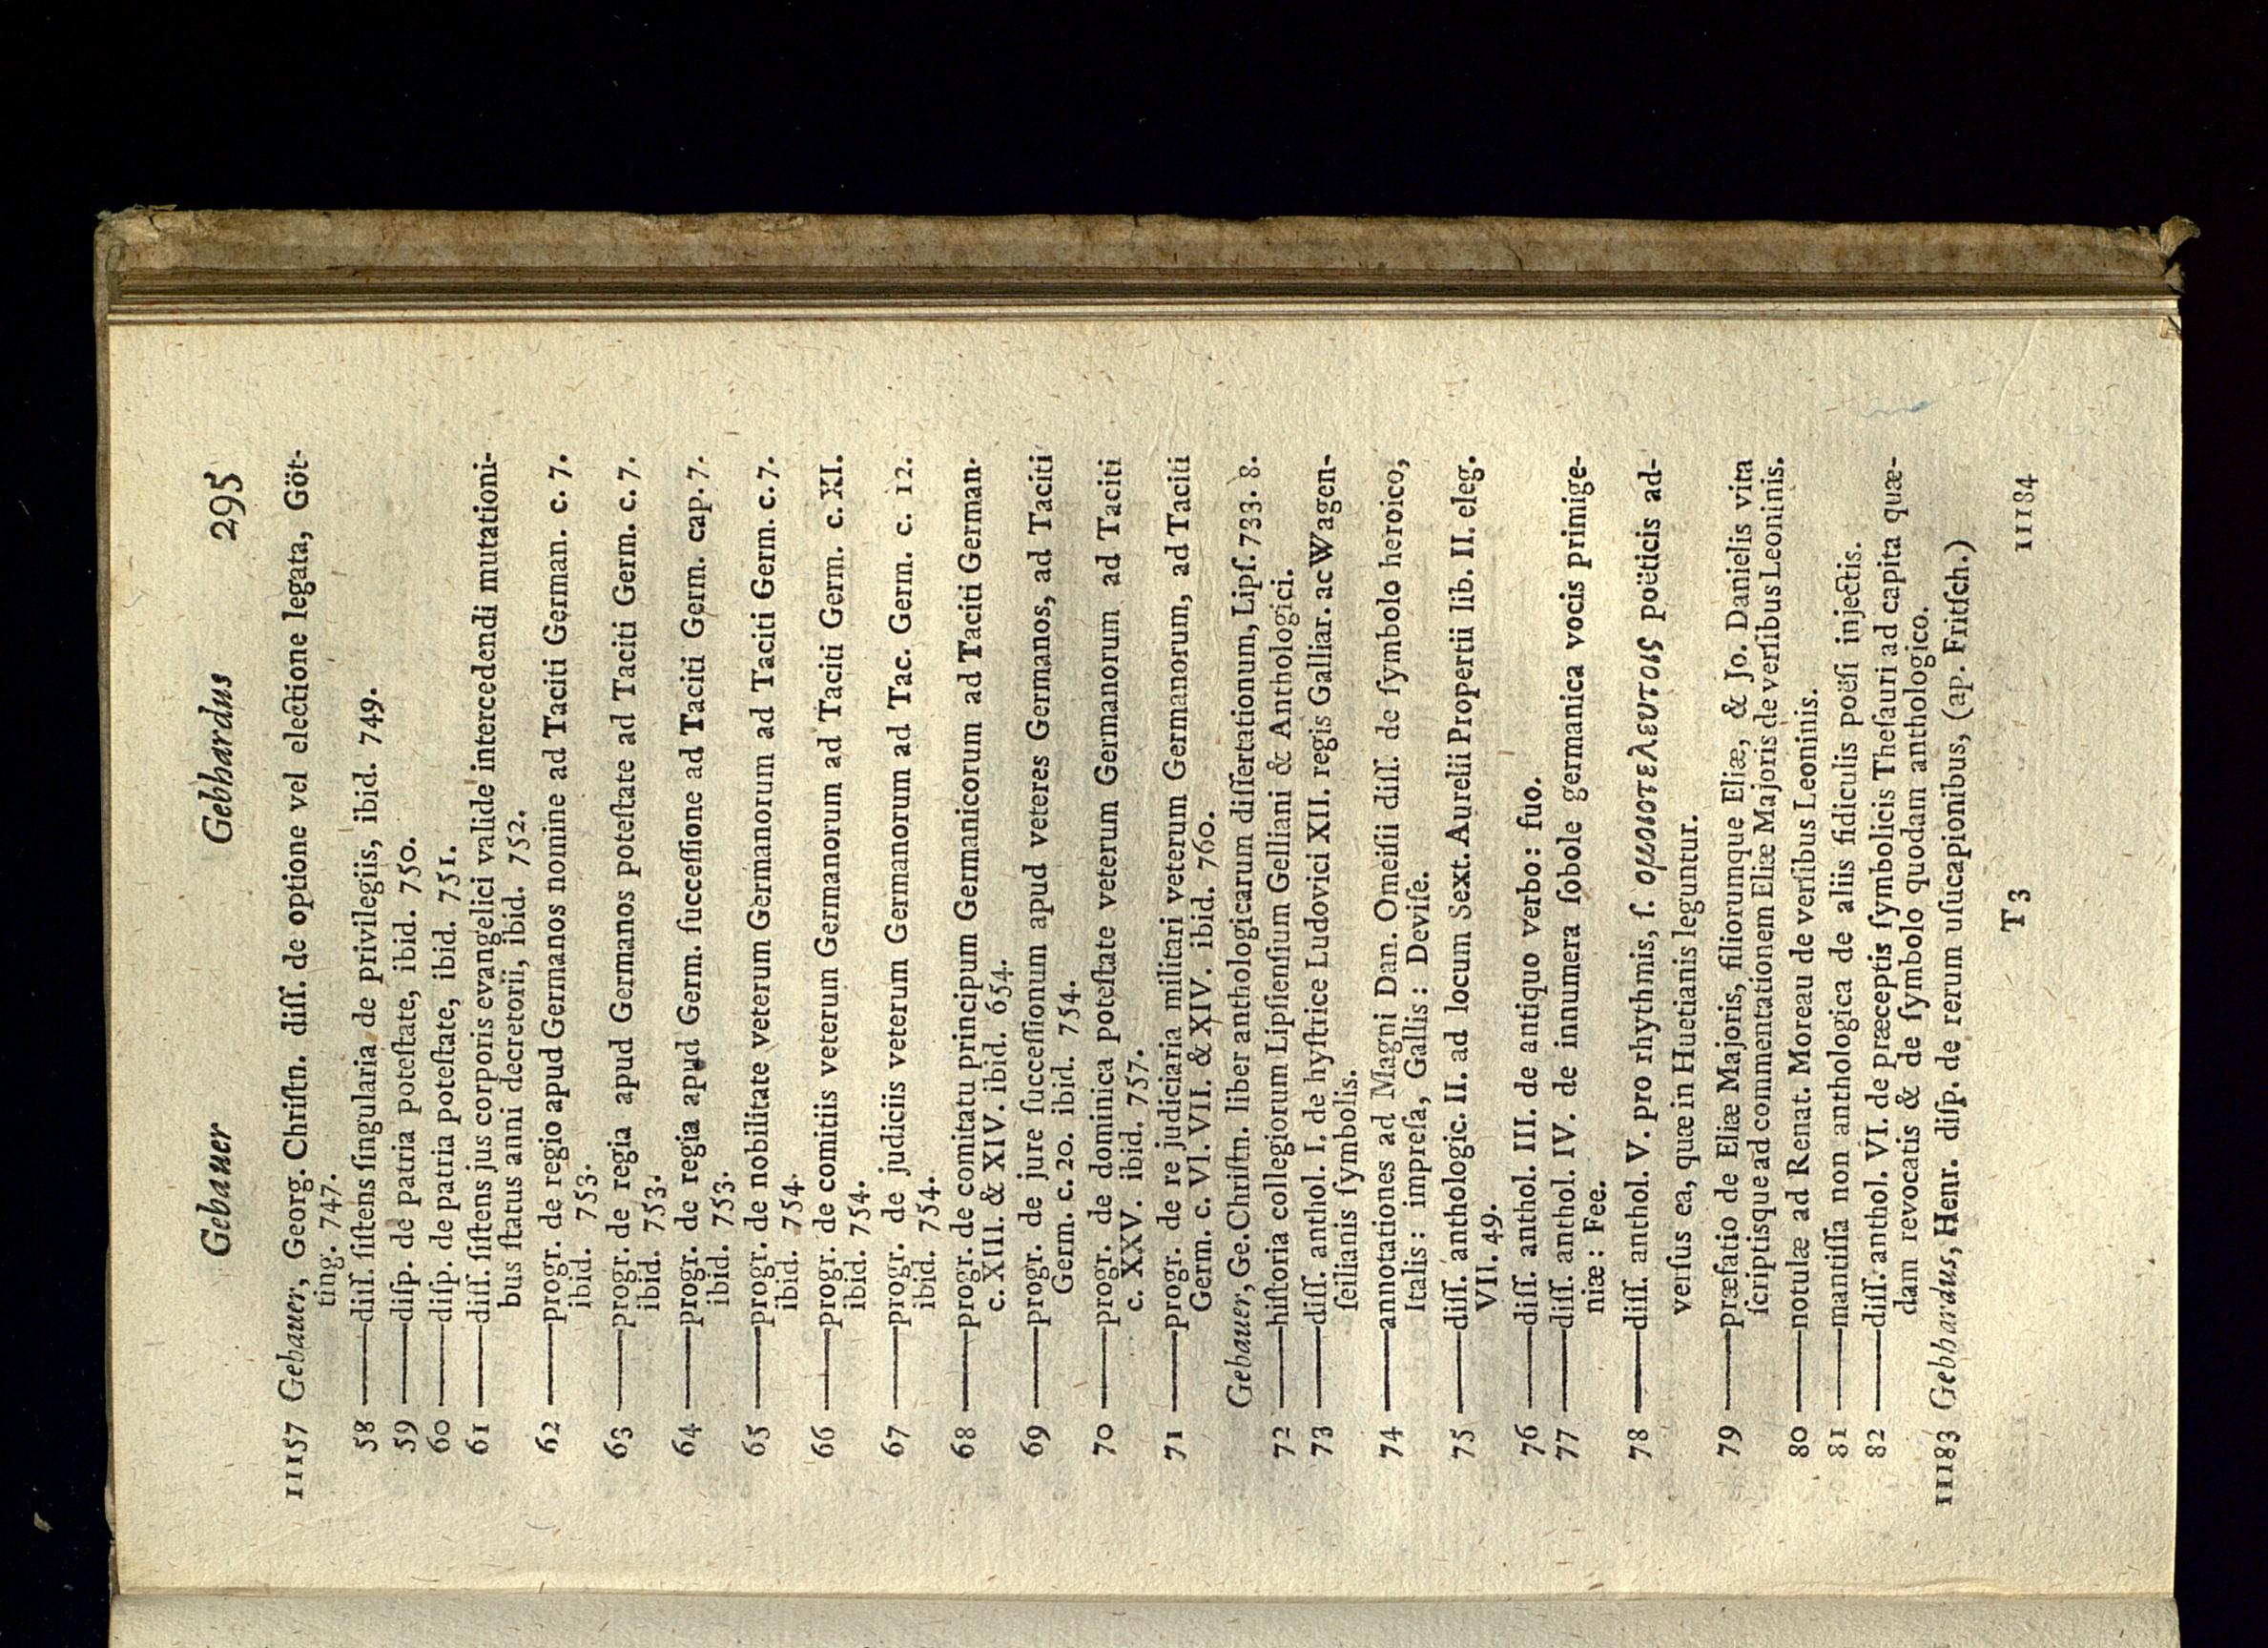 Gebauer Gebhardus 295
11157 Gebauer, Georg. Chriſtn. diſſ. de optione vel electione legata, Göt-
ting. 747.
58 ——diſſ. ſiſtens ſingularia de privilegiis, ibid. 749.
59 ——diſp. de patria poteſtate, ibid. 750.
60 ——diſp. de patria poteſtate, ibid. 751.
61 ——diſſ. ſiſtens jus corporis evangelici valide intercedendi mutationi-
bus ſtatus anni decretorii, ibid. 752.
62 ——progr. de regio apud Germanos nomine ad Taciti German. c. 7.
ibid. 753.
63 ——progr. de regia apud Germanos poteſtate ad Taciti Germ. c. 7.
ibid. 753.
64 ——progr. de regia apud Germ. ſucceſſione ad Taciti Germ. cap. 7.
ibid. 753.
65 ——progr. de nobilitate veterum Germanorum ad Taciti Germ. c. 7.
ibid. 754.
66 ——progr. de comitiis veterum Germanorum ad Taciti Germ. c. XI.
ibid. 754.
67 ——progr. de judiciis veterum Germanorum ad Tac. Germ. c. 12.
ibid. 754.
68 ——progr. de comitatu principum Germanicorum ad Taciti German.
c. XIII. & XIV. ibid. 654.
69 ——progr. de jure ſucceſſionum apud veteres Germanos, ad Taciti
Germ. c. 20. ibid. 754.
70 ——progr. de dominica poteſtate veterum Germanorum ad Taciti
c. XXV. ibid. 757.
71 ——progr. de re judiciaria militari veterum Germanorum, ad Taciti
Germ. c. VI. VII. & XIV. ibid. 760.
Gebauer, Ge. Chriſtn. liber anthologicarum diſſertationum, Lipſ. 733. 8.
72 ——hiſtoria collegiorum Lipſienſium Gelliani & Anthologici.
73 ——diſſ. anthol. I. de hyſtrice Ludovici XII. regis Galliar. ac Wagen-
ſeilianis ſymbolis.
74 ——annotationes ad Magni Dan. Omeiſii diſſ. de ſymbolo heroico,
Italis: impreſa, Gallis: Deviſe.
75 ——diſſ. anthologic. II. ad locum Sext. Aurelii Propertii lib. II. eleg.
VII. 49.
76 ——diſſ. anthol. III. de antiquo verbo: fuo.
77 ——diſſ. anthol. IV. de innumera ſobole germanica vocis primige-
niæ: Fee.
78 ——diſſ. anthol. V. pro rhythmis, ſ. ομοιοτελευτοις poëticis ad-
verſus ea, quæ in Huetianis leguntur.
79 ——præfatio de Eliæ Majoris, filiorumque Eliæ, & Jo. Danielis vita
ſcriptisque ad commentationem Eliæ Majoris de verſibus Leoninis.
80 ——notulæ ad Renat. Moreau de verſibus Leoninis.
81 ——mantiſſa non anthologica de aliis fidiculis poëſi injectis.
82 ——diſſ. anthol. VI. de præceptis ſymbolicis Theſauri ad capita quæ-
dam revocatis & de ſymbolo quodam anthologico.
11183 Gebhardus, Henr. diſp. de rerum uſucapionibus, (ap. Fritſch.)
T 3 11184